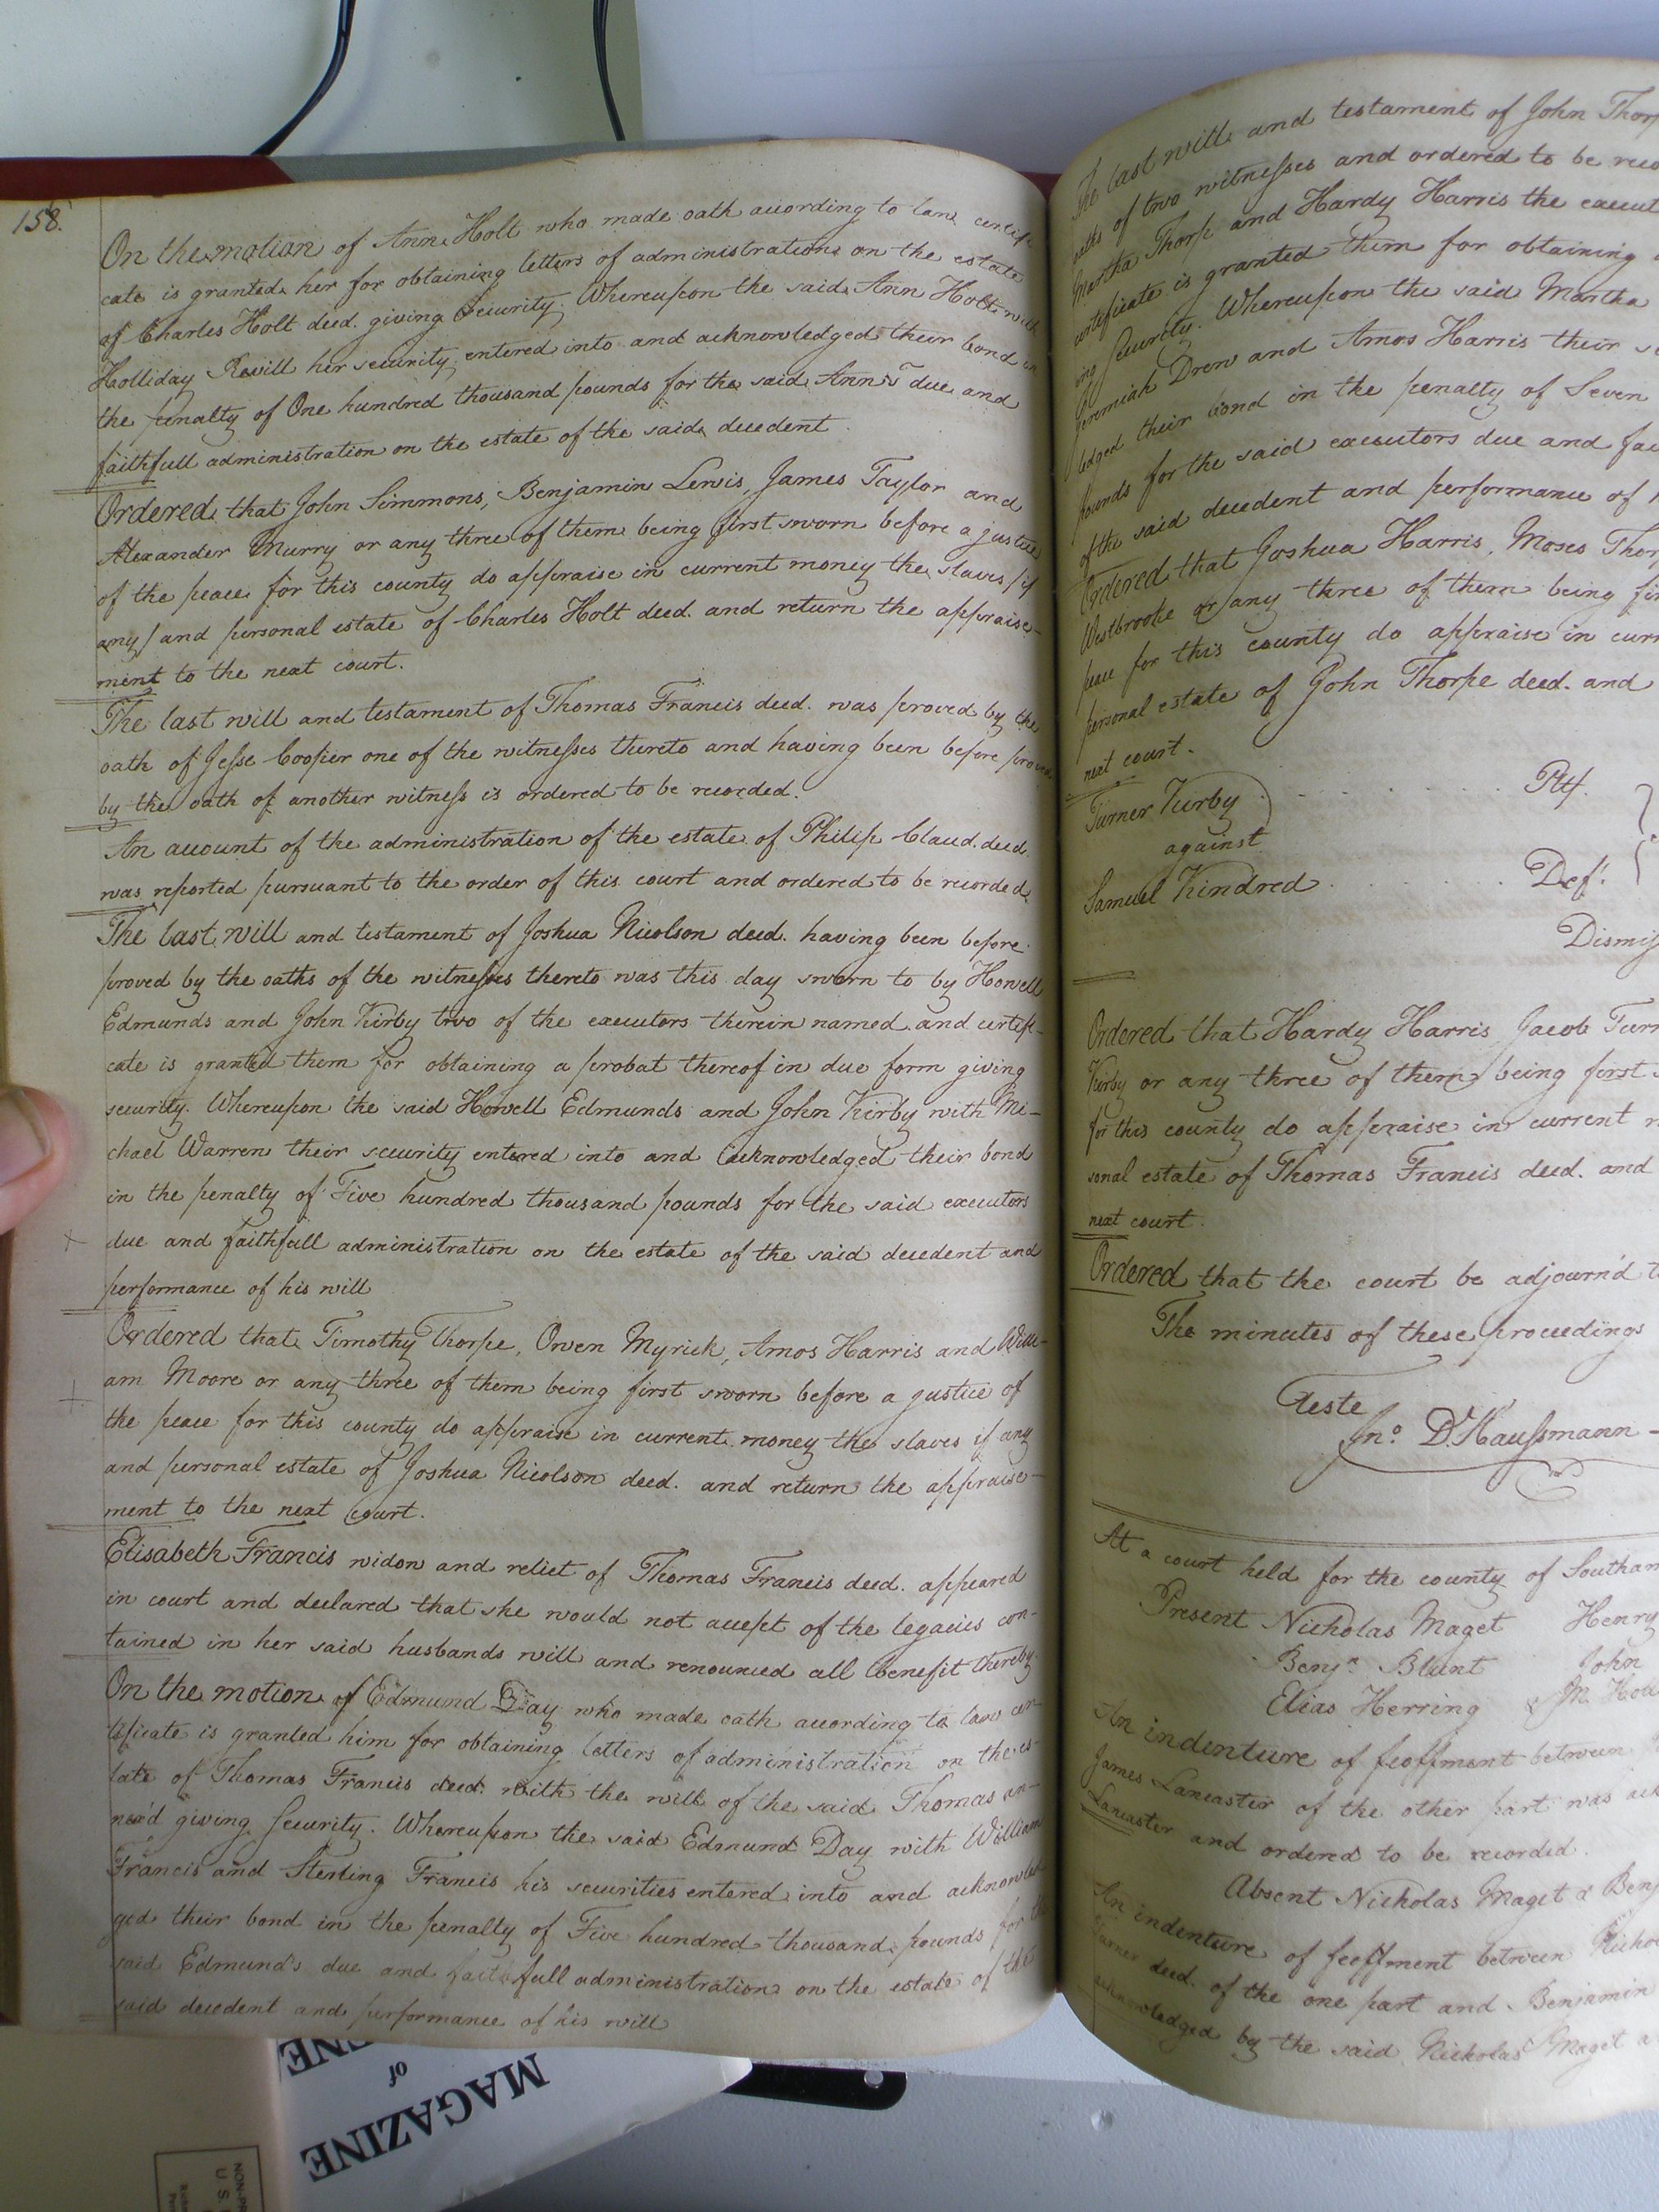 158.
On the motion of Ann Holt who made oath according to law certifi
cate is granted her for obtaining letters of administration on the estate
of Charles Holt deed. giving Security. Whereupon the said Ann Holt with
Holliday Revill her security entered into and acknowledged their bond in
the penalty of One hundred thousand pounds for the said Ann's due and
faithfull administration on the estate of the said decedent.
Ordered that John Simmons, Benjamin Lewis, James Taylor and
Alexander Murry or any three of them being first sworn before a justice
of the peace for this county do appraise in current money the slaves /if
any/ and personal estate of Charles Holt deed. and return the appraise-
ment to the next court.
The last will and testament of Thomas Francis deed. was proved by the
oath of Jesse Cooper one of the witnesses thereto and having been before proved
by the oath of another witness is ordered to be recorded.
An account of the administration of the estate of Philip Claud. deed.
was reported pursuant to the order of this court and ordered to be recorded
The last will and testament of Joshua Nicolson deed. having been before
proved by the oaths of the witnesses thereto was this day sworn to by Howell
Edmunds and John Kirby two of the executors therein named and certifi-
cate is granted them for obtaining a probat thereof in due form giving
security. Whereupon the said Howell Edmunds and John Kirby with Mi-
chael Warren their security entered into and acknowledged their bond
in the penalty of Five hundred thousand pounds for the said executors
due and faithfull administration on the estate of the said decedent and
performance of his will
Ordered that Timothy Thorpe, Owen Myrick, Amos Harris and Willi-
am Moore or any three of them being first sworn before a justice of
the peace for this county do appraise in current money the slaves if any
and personal estate of Joshua Nicolson deed. and return the appraise-
ment to the next Court.
Elisabeth Francis widow and relict of Thomas Francis deed. appeared
in court and declared that she would not accept of the legacies con-
tained in her said husbands will and renounced all benefit thereby
On the motion of Edmund Day who made oath according to law cer-
tificate is granted him for obtaining letters of administration on the es-
tate of Thomas Francis deed. with the will of the said Thomas an-
nex'd giving Security. Whereupon the said Edmund Day with William
Francis and Sterling Francis his securities entered into and acknowled
ged their bond in the penalty of Five hundred thousand pounds for the
said Edmund's due and faithfull administration on the estate of the
said decedent and performance of his will
The last will and testament of John Thorp
oaths of two witnesses and ordered to be reco
Martha Thorp and Hardy Harris the execut
certificate is granted them for obtaining a
ing Security. Whereupon the said Martha
Jeremiah Drew and Amos Harris their se
ledged their bond in the penalty of Seven
pounds for the said executors due and fai
of the said decedent and performance of
Ordered that Joshua Harris, Moses Thor
Westbrooke or any three of them being fir
peace for this county do appraise in curr
personal estate of John Thorpe deed. and
next court.
Turner Kirby . . . . . . . Plt.
against
Samuel Kindred . . . . . . Deft.
Dismiss
Ordered that Hardy Harris Jacob Turn
Kirby or any three of them being first s
for this county do appraise in current m
sonal estate of Thomas Francis deed. and
next court.
Ordered that the court be adjourn'd t
The minutes of these proceedings
Teste
Jno. D. Haussmann
At a court held for the county of Southam
Present Nicholas Maget Henry
Benjn. Blunt John
Elias Herring &
An indenture of feoffment between
James Lancaster of the other part was ack
Lancaster and ordered to be recorded.
Absent Nicholas Maget & Benj
An indenture of feoffment between Nicho
Turner deed. of the one part and Benjamin
acknowledged by the said Nicholas Maget a
MAGAZINE
of
NON-PR
U. S.